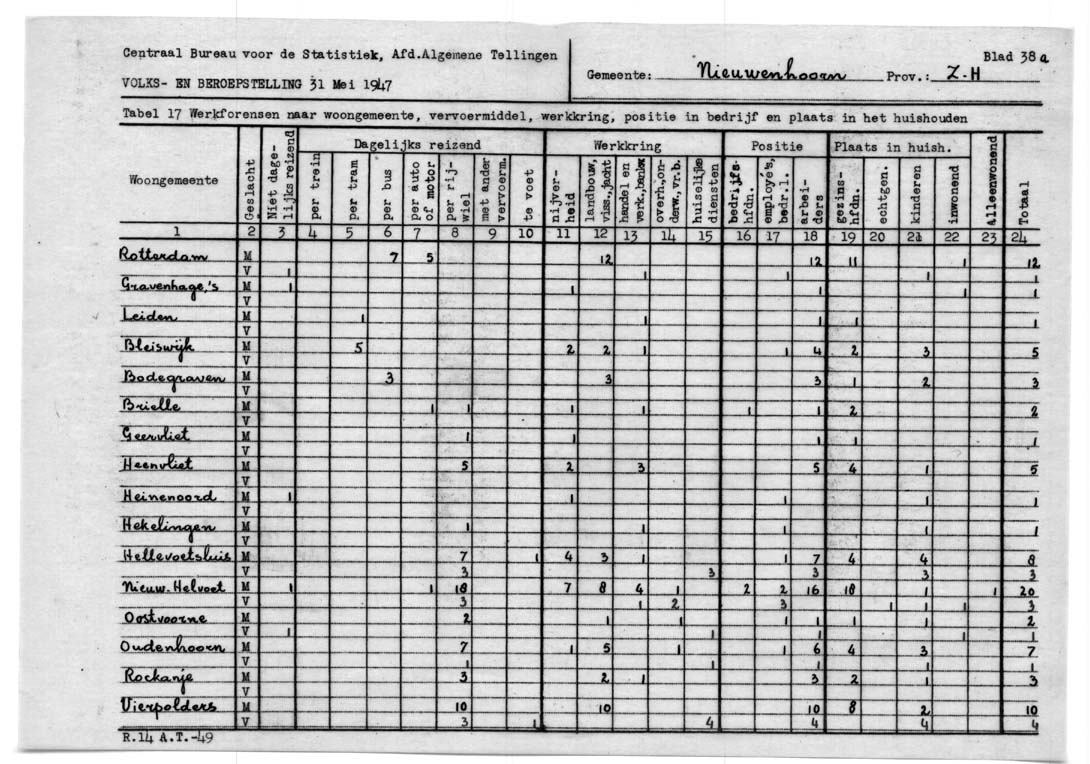 Centraal Bureau voor de Statistiek, Afd.Algemene Tellingen
VOLKS- EN BEROEPSTELLING 31 Mei 1947
Gemeente: Nieuwenhoorn Prov.: Z-H
Blad 38a
Tabel 17 Werkforensen naar woongemeente, vervoermiddel, werkkring, positie in bedrijf en plaats in het huishouden
Woongemeente Geslacht Niet dagelijks reizend Dagelijks reizend Werkkring Positie Plaats in huish. Alleenwonend Totaal
per trein per tram per bus per auto of motor per rij-wiel met ander vervoerm. te voet nijver-heid landbouw, viss.,jacht handel en verk.,bankw overh.,on-derw.,vr.b. huiselijke diensten bedrijfs-hfdn. employé's, bedr.l. arbei-ders gezins-hfdn. echtgen. kinderen inwonend
1 2 3 4 5 6 7 8 9 10 11 12 13 14 15 16 17 18 19 20 21 22 23 24
Rotterdam M 7 5 12 12 11 1 12
V 1 1 1 1 1
Gravenhage,'s M 1 1 1 1 1
V
Leiden M 1 1 1 1 1
V
Bleiswijk M 5 2 2 1 1 4 2 3 5
V
Bodegraven M 3 3 3 1 2 3
V
Brielle M 1 1 1 1 1 1 2 2
V
Geervliet M 1 1 1 1 1
V
Heenvliet M 5 2 3 5 4 1 5
V
Heinenoord M 1 1 1 1 1
V
Hekelingen M 1 1 1 1 1
V
Hellevoetsluis M 7 1 4 3 1 1 7 4 4 8
V 3 3 3 3 3
Nieuw.Helvoet M 1 1 18 7 8 4 1 2 2 16 18 1 1 20
V 3 1 2 3 1 1 1 3
Oostvoorne M 2 1 1 1 1 1 1 2
V 1 1 1 1 1
Oudenhoorn M 7 1 5 1 1 6 4 3 7
V 1 1 1 1 1
Rockanje M 3 2 1 3 2 1 3
V
Vierpolders M 10 10 10 8 2 10
V 3 1 4 4 4 4
R.14 A.T.-49